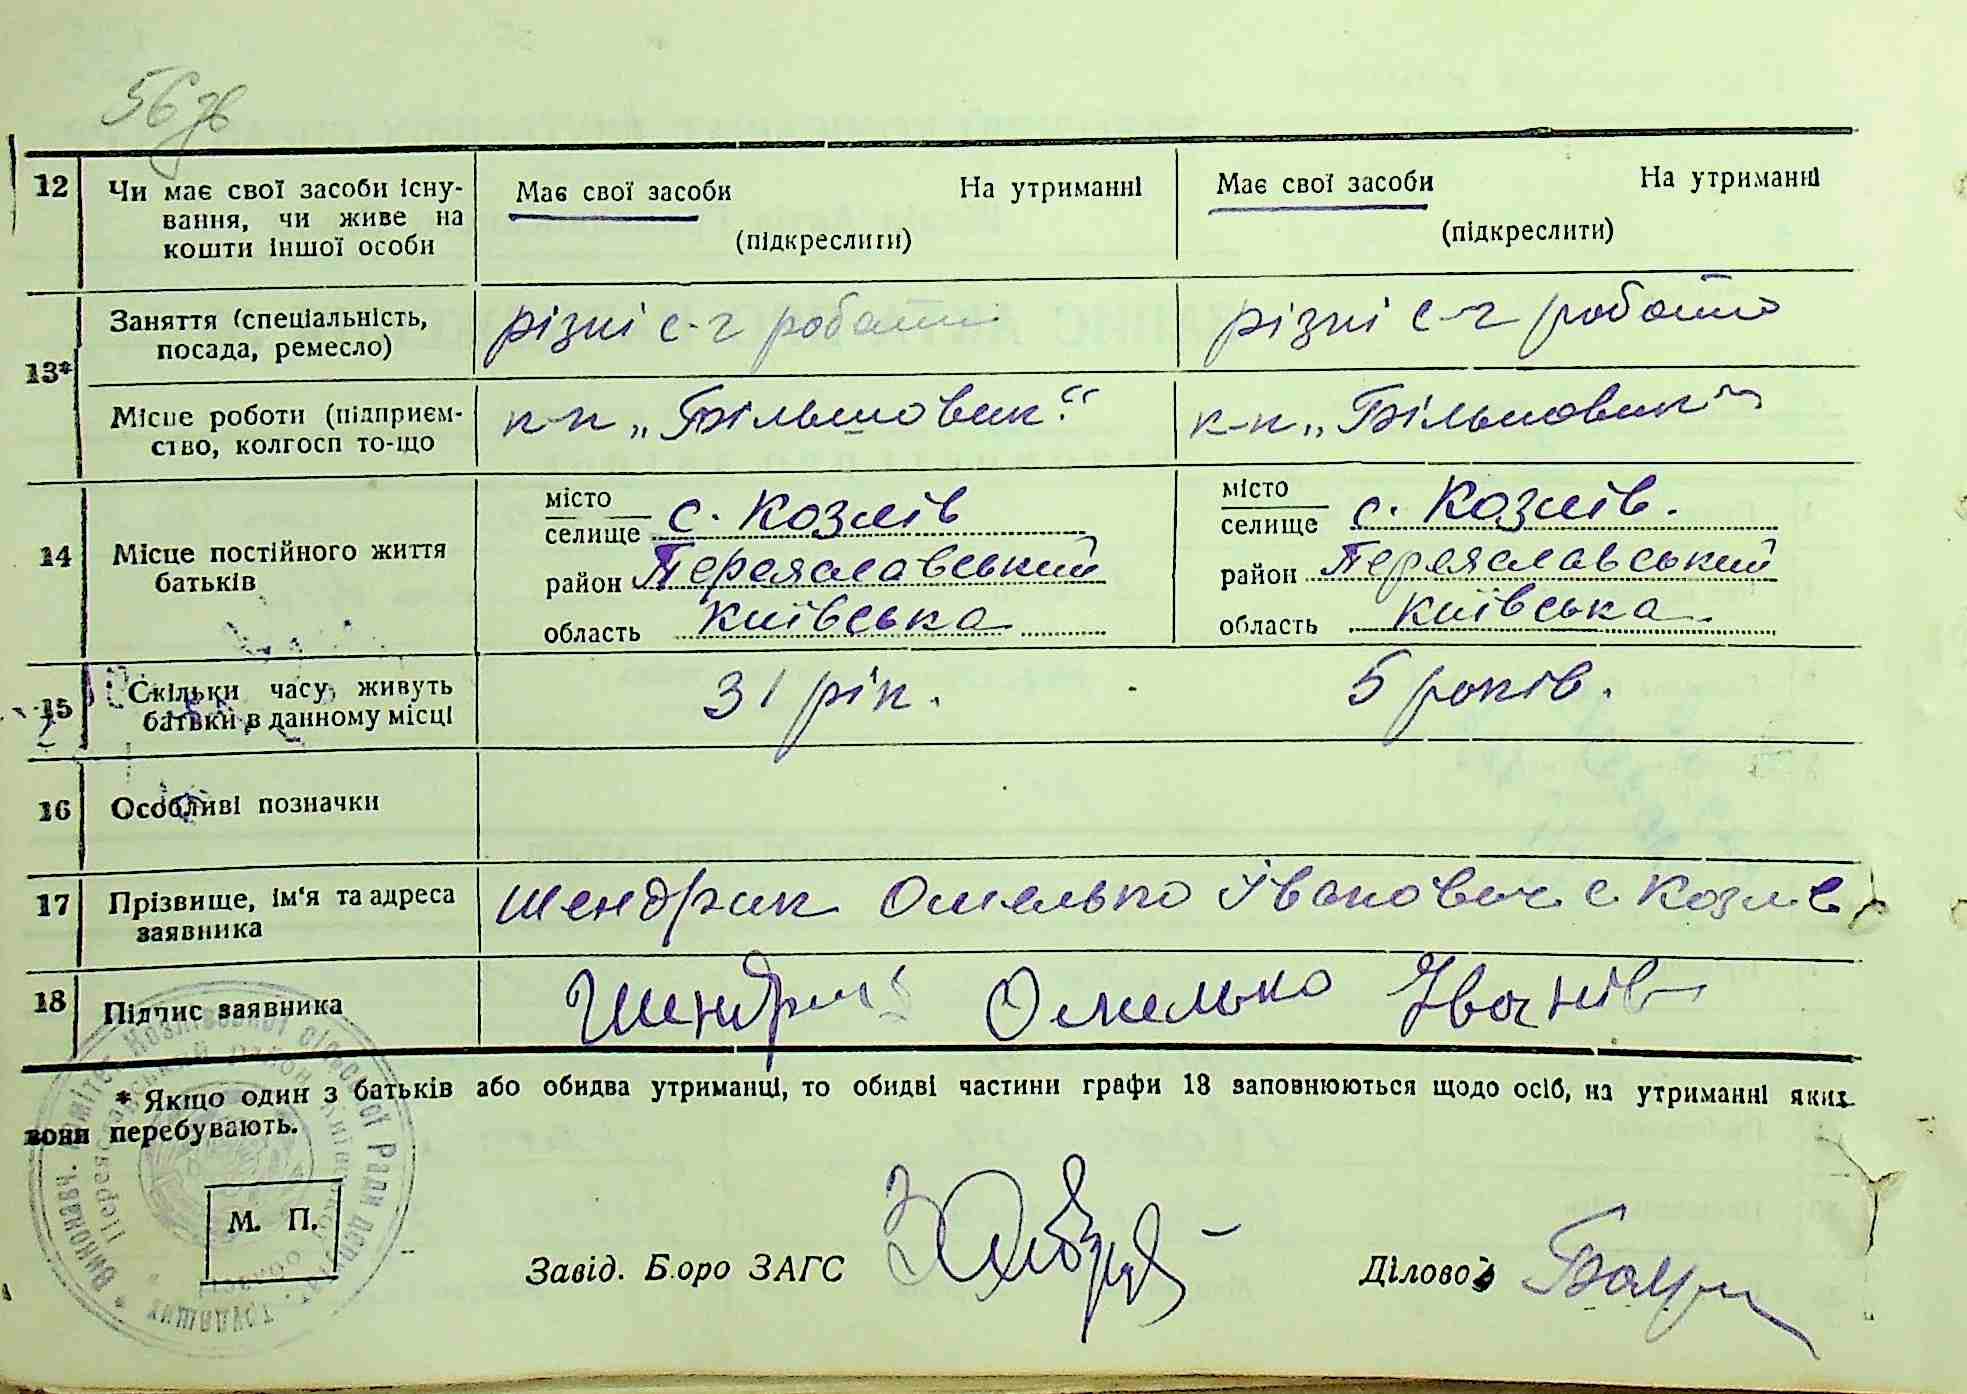 56 зв
12 Чи має свої засоби існу-
вання, чи живе на
кошти іншої особи
Має свої засоби На утриманні
(підкреслити)
Має свої засоби На утриманні
(підкреслити)
13* Заняття (спеціальність,
посада, ремесло)
різні с-г роботи
різні с-г роботи
Місце роботи (підприєм-
ство, колгосп то-що
к-п „Більшовик"
к-п „Більшовик"
14 Місце постійного життя
батьків
місто
селище с. Козлів
район Переяславський
область Київська
місто
селище с. Козлів.
район Переяславський
область Київська
15 Скільки часу живуть
батьки в данному місці
31 рік.
5 років.
16 Особливі позначки
17 Прізвище, ім'я та адреса
заявника
Шендрик Омелько Іванович с. Козлів
18 Підпис заявника
Шендрик Омелько Іванів
* Якщо один з батьків або обидва утриманці, то обидві частини графи 18 заповнюються щодо осіб, на утриманні яких
вони перебувають.
М. П.
Завід. Бюро ЗАГС
Діловод
Виконавч. Комітет Козлівської сільської Ради депутат. трудящих